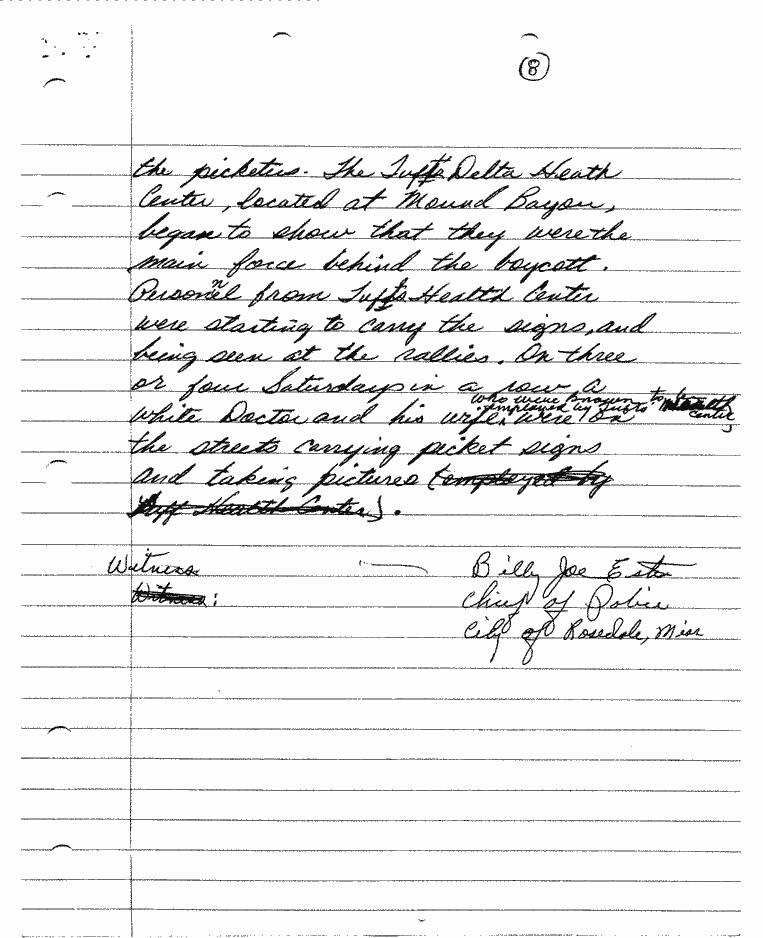 8
the picketers. The Tufts Delta Heath
Center, located at Mound Bayou,
began to show that they were the
main force behind the boycott.
Personnel from Tufts Health Center
were starting to carry the signs, and
being seen at the rallies. On three
or four Saturdays in a row, a
who were
employed by Tufts
center
white Doctor and his wife, were on
the streets carrying picket signs
and taking pictures (employed by
Tuff Health Center).
Witness
Witness:
Billy Joe
Chief of Police
City of Rosedale, Miss